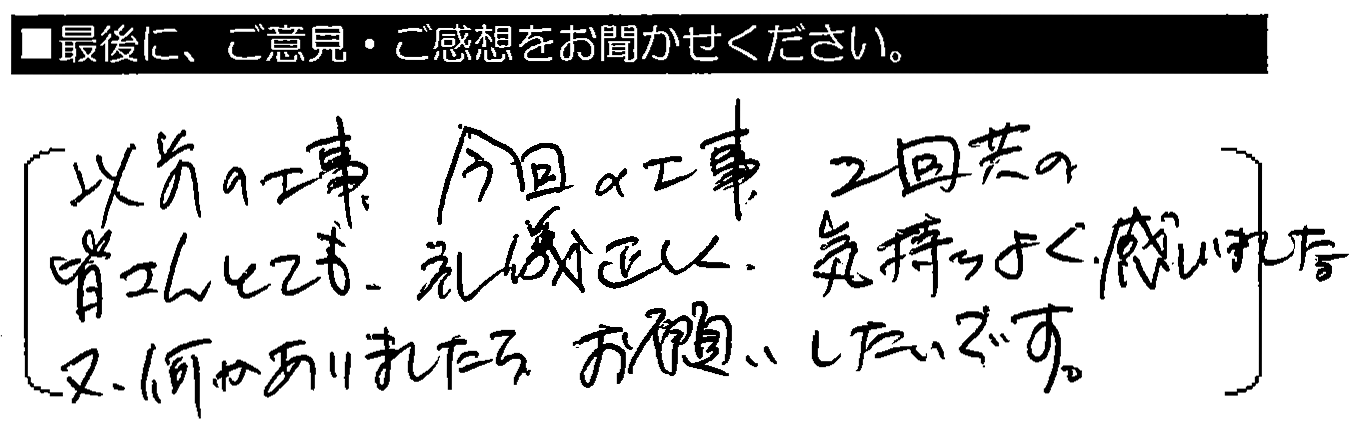 ■最後に、ご意見・ご感想をお聞かせください。
以前の工事、今回の工事、2回共の
皆さんとても、礼儀正しく、気持ちよく感じました。
又、何かありましたら、お願いしたいです。